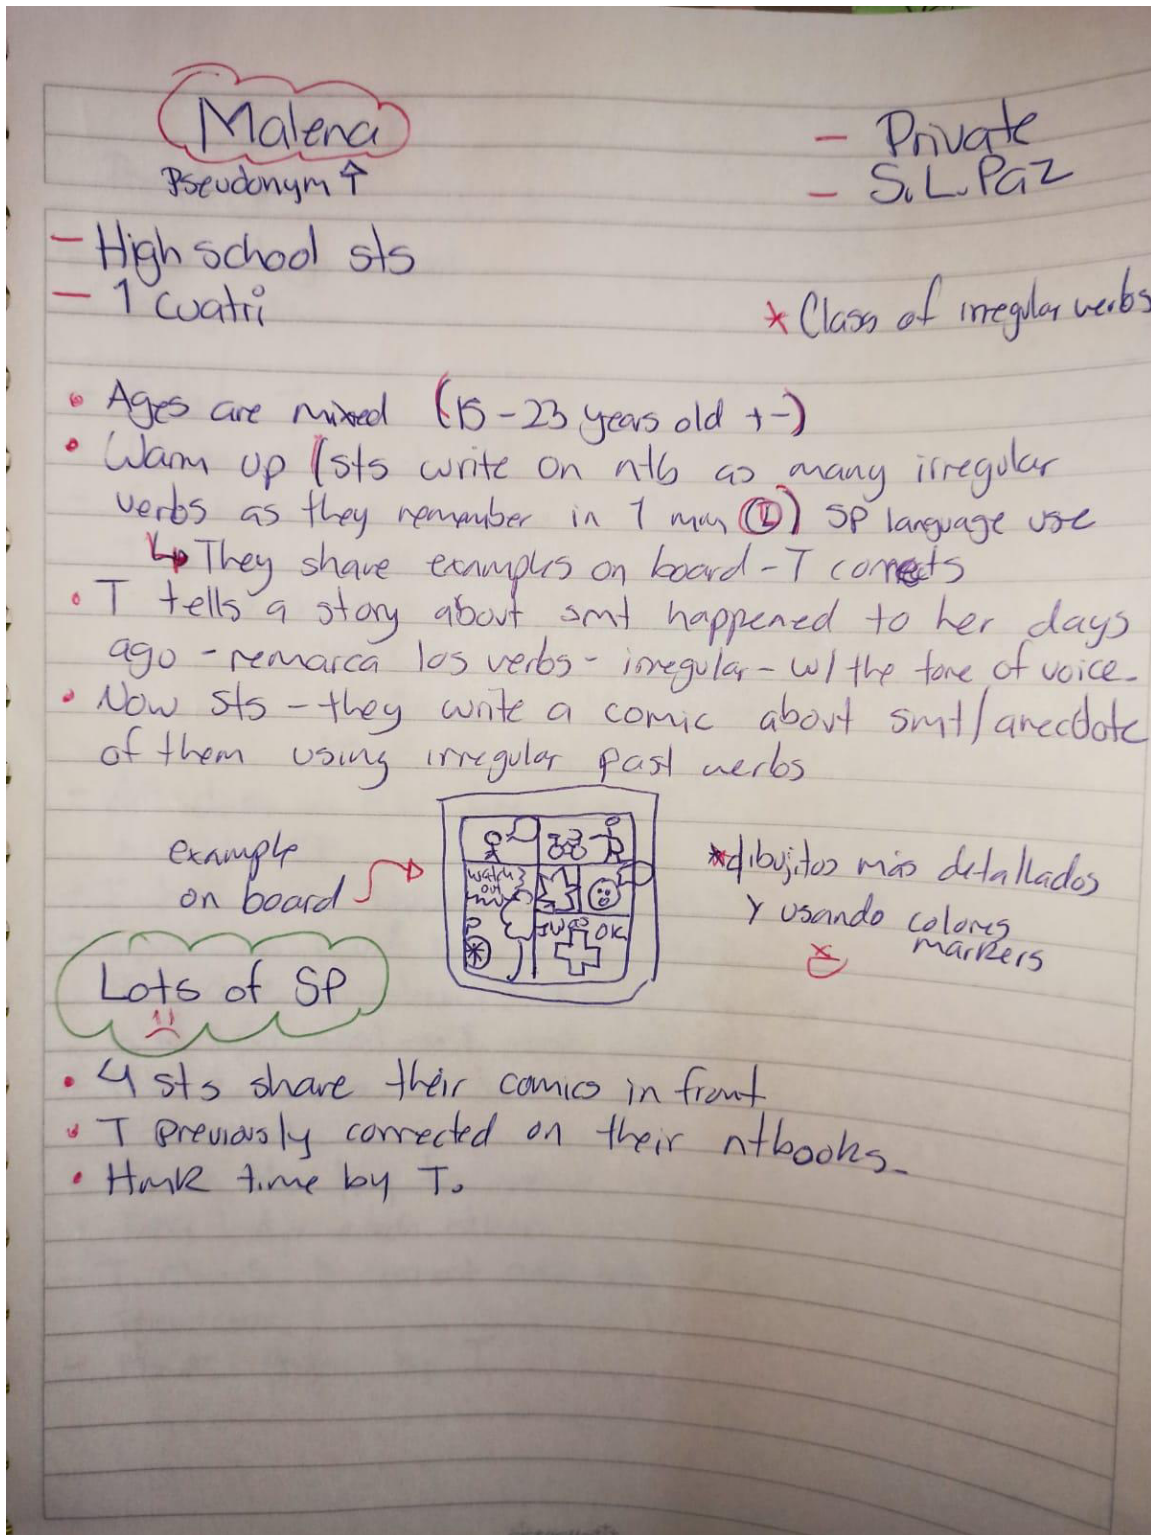 Malena
Pseudonym ↑
- Private
- S.L. Paz
- High school sts
- 1 cuatri
* Class of irregular verbs
• Ages are mixed (15-23 years old +-)
• Warm up (sts write on ntb as many irregular
verbs as they remember in 1 min) SP language use
↳ They share examples on board - T corrects
• T tells a story about smt happened to her days
ago - remarca los verbs - irregular - w/ the tone of voice-
• Now sts - they write a comic about smt/anecdote
of them using irregular past verbs
example
on board
watch
out
I was OK
*dibujitos más detallados
Y usando colores
markers
Lots of SP
• 4 sts share their comics in front
• T previously corrected on their ntbooks-
• HmK time by T.